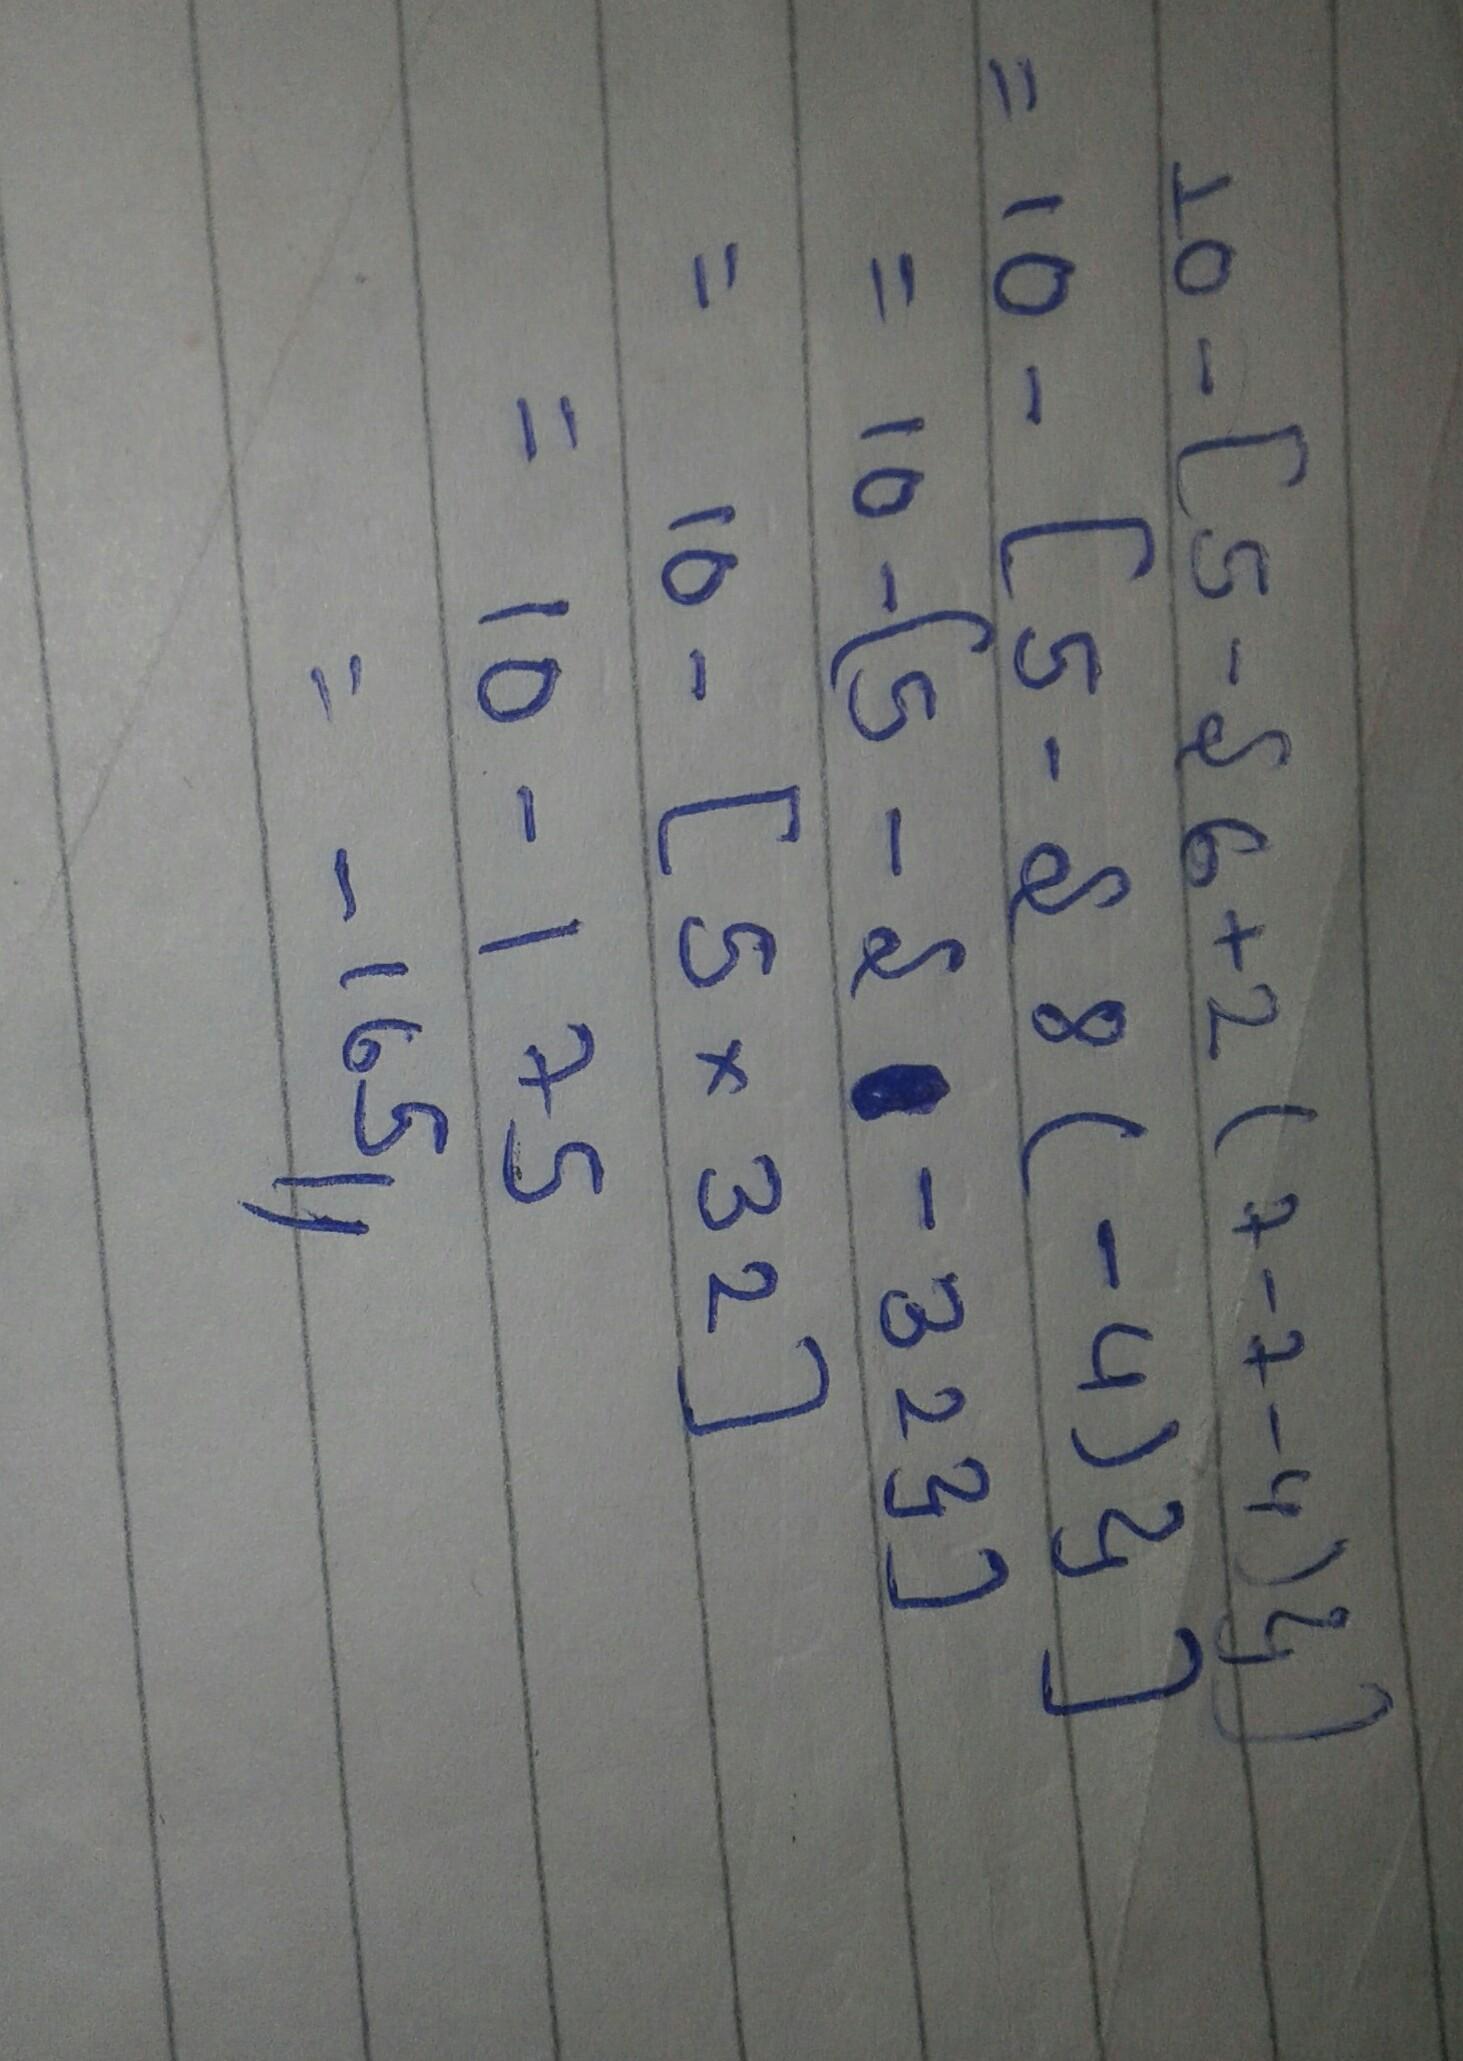 10 - [5 - {6 + 2 (7 - 7 - 4)}]
= 10 - [5 - {8 (-4)}]
= 10 - [5 - { - 32}]
= 10 - [5 x 32]
= 10 - 175
= - 165